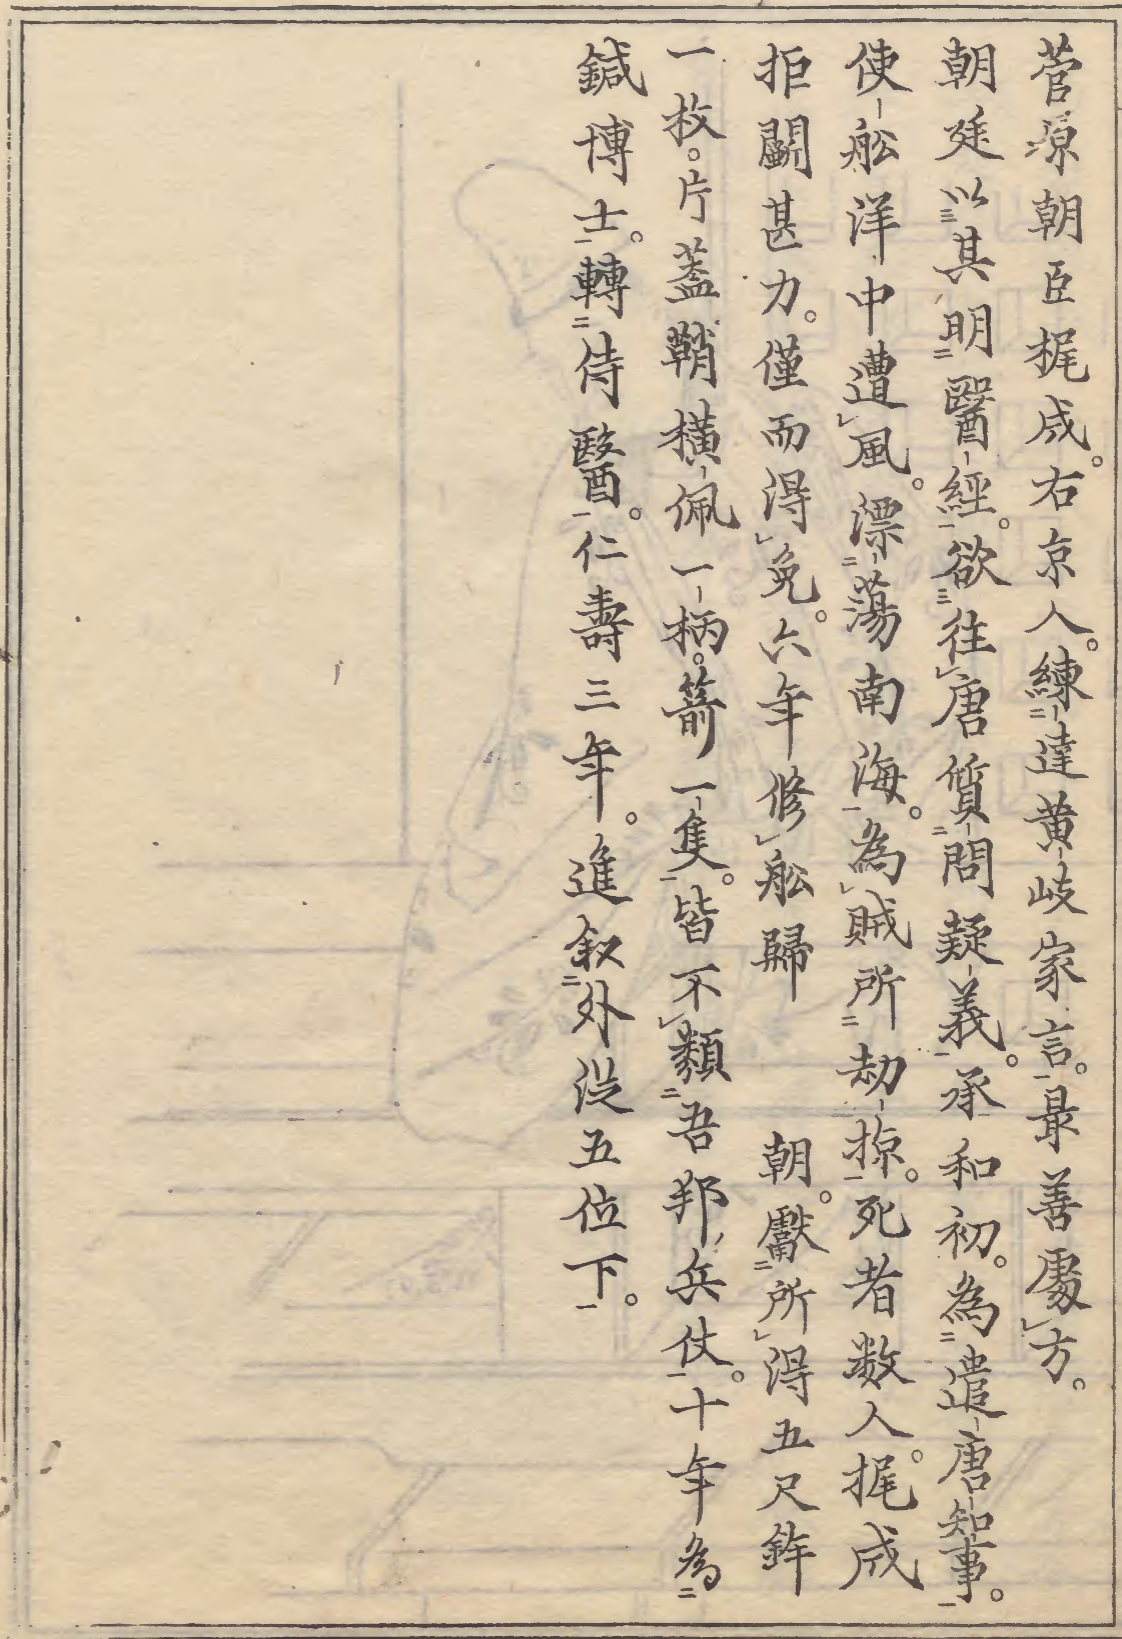 菅原朝臣梶成。右京人。練達黄岐家言。最善處方。
朝廷以其明醫經。欲往唐質問疑義。承和初。為遣唐知事。
使舩洋中遭風。漂蕩南海。為賊所劫掠。死者数人。梶成
拒鬭甚力。僅而得免。六年修舩歸　朝。獻所得五尺鉾
一枚。片蓋鞘横佩一柄。箭一隻。皆不類吾邦兵仗。十年為
鍼博士。轉侍醫。仁壽三年。進叙外従五位下。